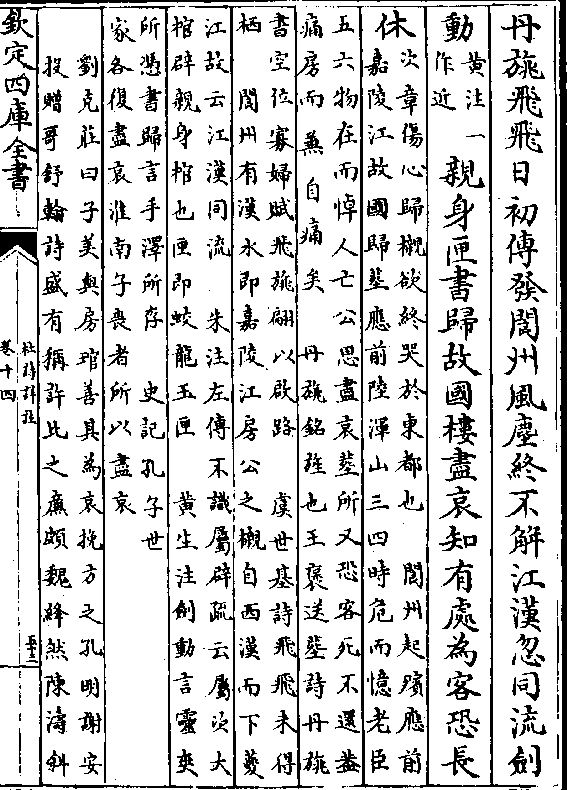 丹旐飛飛日初傳發閬州風塵終不解江漢忽同流劍
動黃注一作近親身匣書歸故國樓盡哀知有處為客恐長
休次章傷心歸櫬欲終哭於東都也 閬州起殯應前
嘉陵江故國歸塟應前陸渾山三四時危而憶老臣
五六物在而悼人亡公思盡哀塟所又恐客死不還蓋
痛房而兼自痛矣 丹旐銘旌也王褒送塟詩丹旐
書空位寡婦賦飛旐翩以啟路 虞世基詩飛飛未得
栖 閬州有漢水即嘉陵江房公之櫬自西漢而下夔
江故云江漢同流 朱注左傳不識屬辟疏云屬次大
棺辟親身棺也匣即蛟龍玉匣 黃生注劍動言靈爽
所憑書歸言手澤所存 史記孔子世
家各復盡哀淮南子喪者所以盡哀
劉克莊曰子美與房琯善其為哀挽方之孔明謝安
投贈哥舒翰詩盛有稱許比之廉頗魏絳然陳濤斜
欽定四庫全書
杜詩詳註
卷十四
五十二